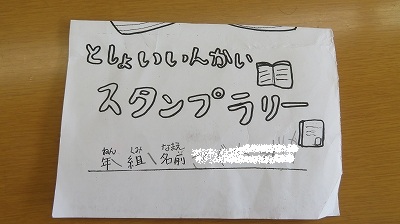 としょいいんかい
スタンプラリー
ねん くみ なまえ
年 組 名前